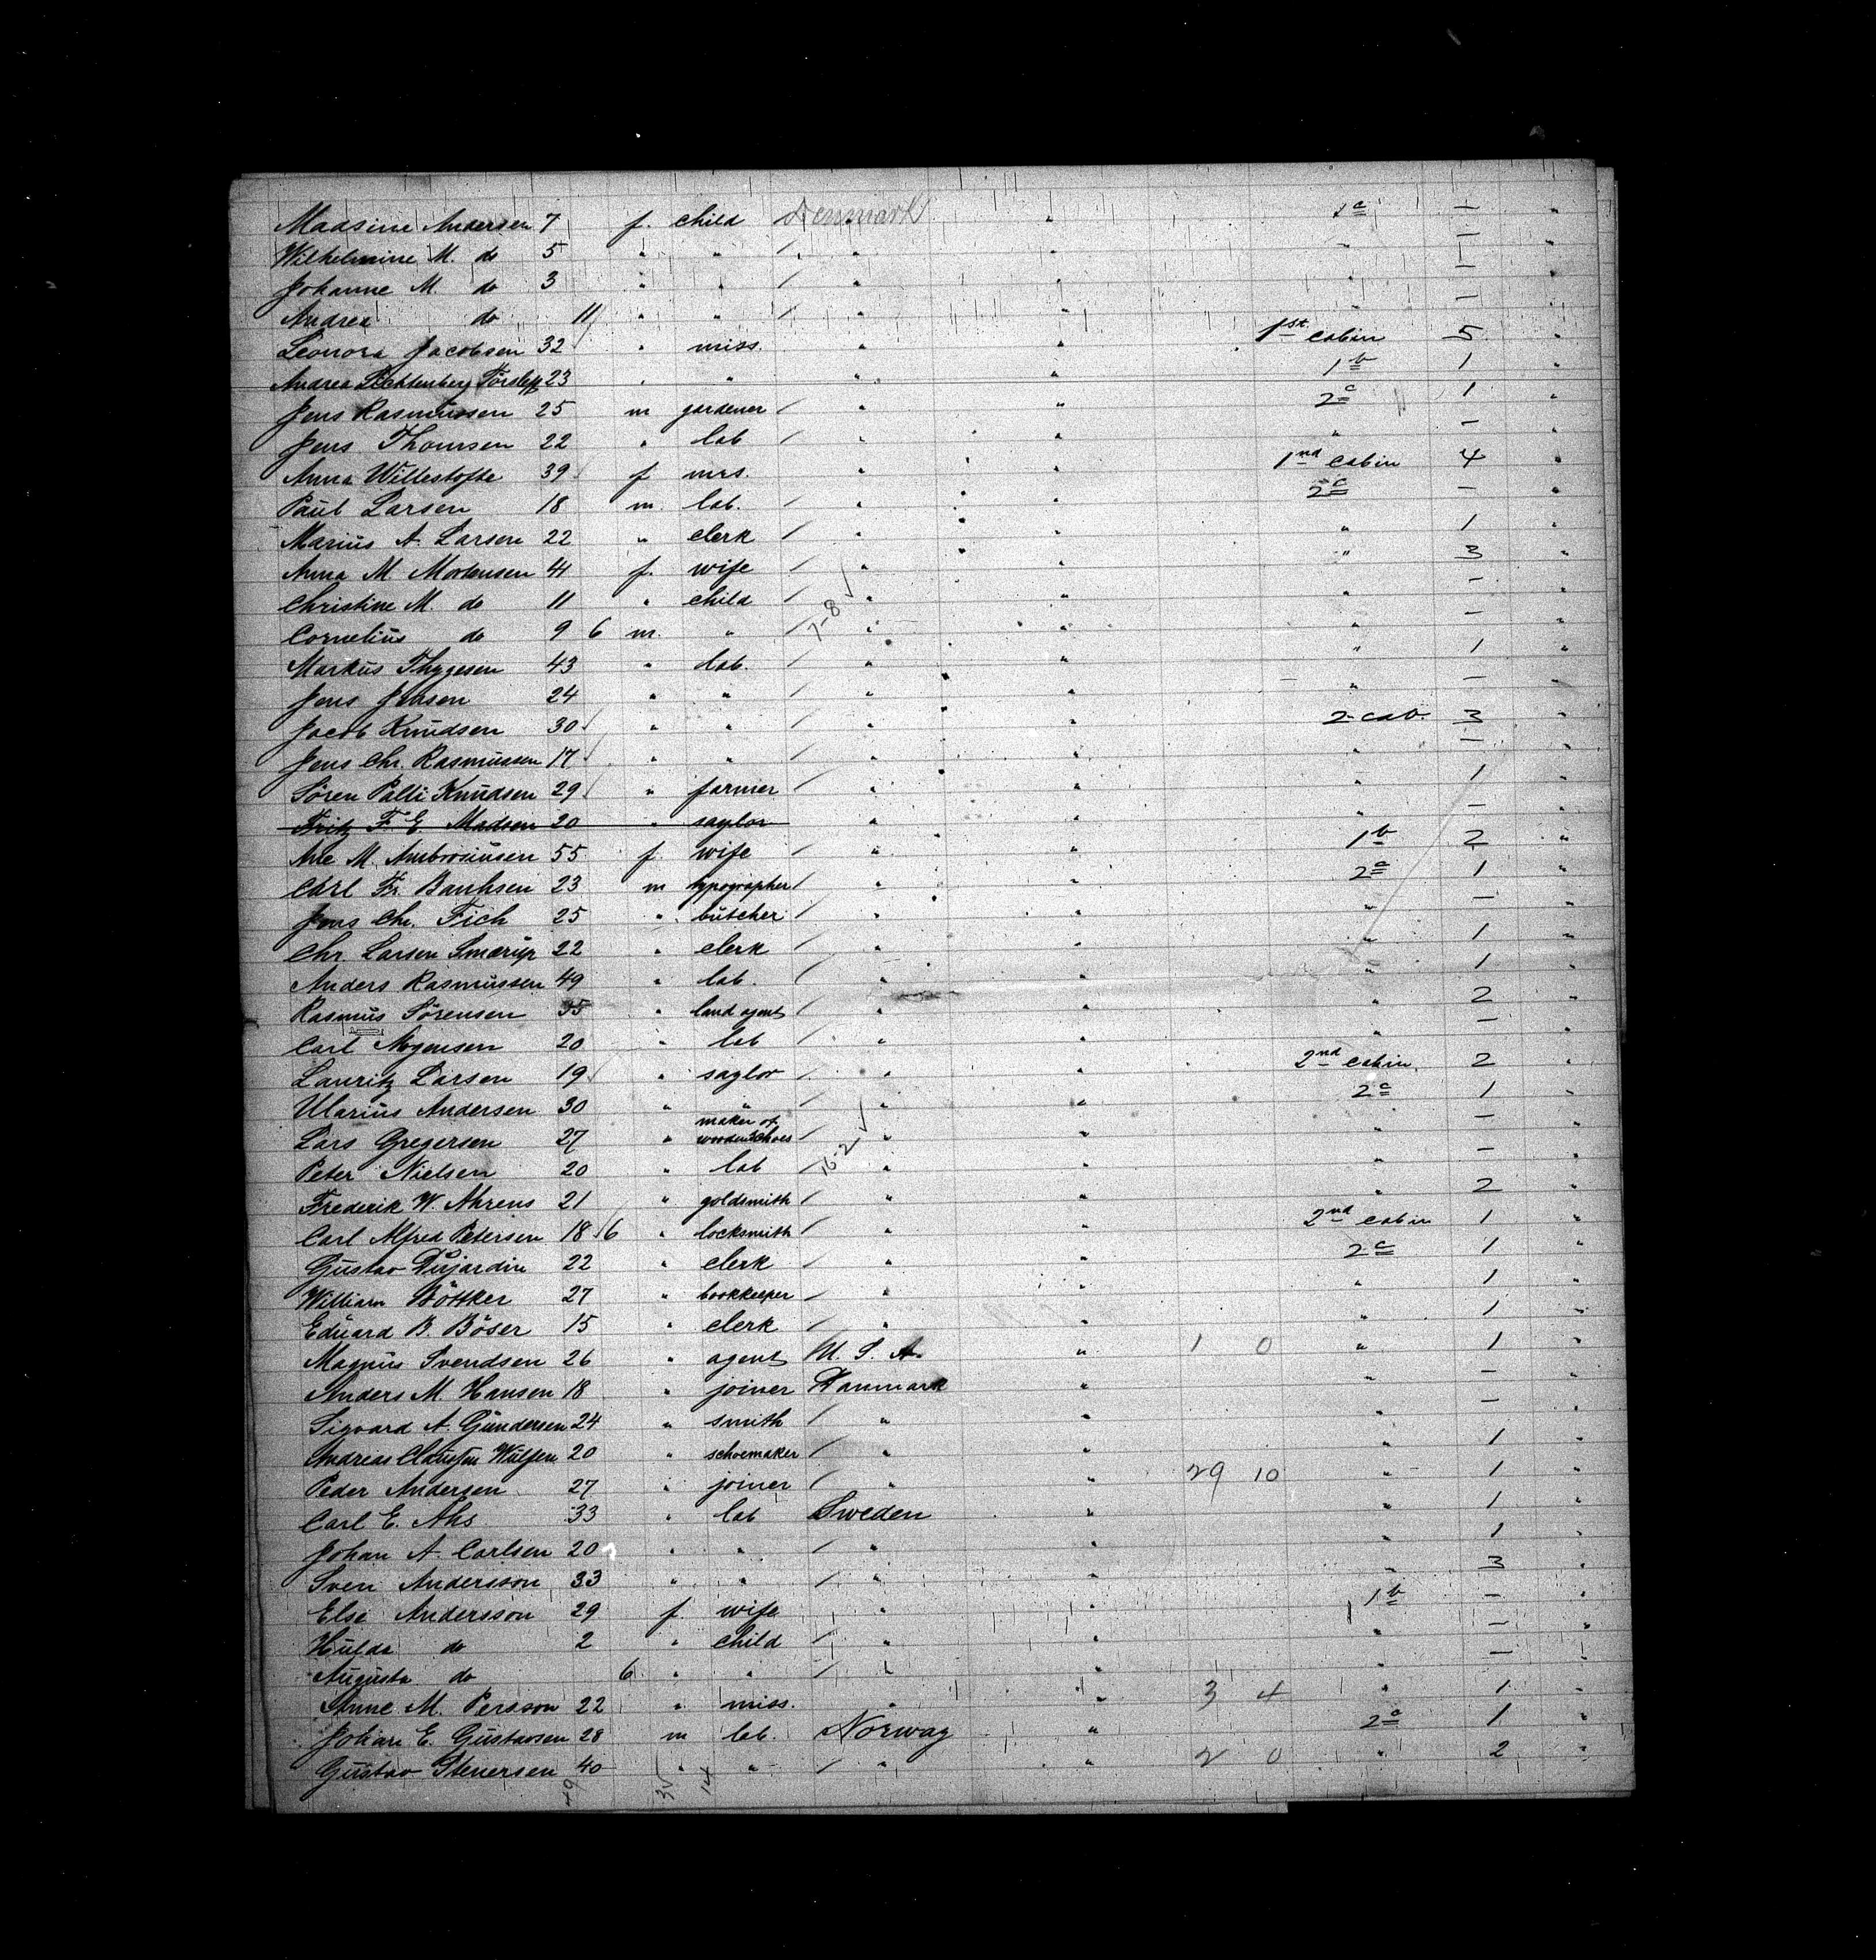 Madsine Andersen 7 f. child Denmark " 1c — "
Wilhelmine M. do 5 " " / " " " — "
Johanne M. do 3 " " / " " " — "
Andrea do 11 " " / " " " — "
Leonora Jacobsen 32 " miss. " " 1st cabin 5 "
Andrea 23 " " " " 1b 1 "
Jens Rasmussen 25 m gardener / " " 2c 1 "
Jens Thomsen 22 " lab / " " " — "
Anna Willestofte 39 f mrs. " " 1nd cabin 4 "
Paul Larsen 18 m. lab. / " " 2c — "
Marius A. Larsen 22 " clerk / " " " 1 "
Anna M Mortensen 41 f. wife / " " " 3 "
Christine M. do 11 " child / " " " — "
Cornelius do 9 6 m. " / 7-8 " " " — "
Markus Thygesen 43 " lab. / " " " 1 "
Jens Jebsen 24 " " / " " " — "
Jacob Knudsen 30 " " / " " 2 cab. 3 "
Jens Chr. Rasmussen 17 " " / " " " — "
Sören Palli Knudsen 29 " farmer / " " " 1 "
Fritz F. E. Madsen 20 " saylor " " " — "
Ane M Ambrosiusen 55 f. wife / " " 1b 2 "
Carl Fr. Bauhsen 23 m typographer / " " 2c 1 "
Jens Chr. Fich 25 " butcher / " " " — "
Chr. Larsen Smærup 22 " clerk / " " " 1 "
Anders Rasmussen 49 " lab. / " " " 1 "
Rasmus Sörensen 35 " land agent / " " " 2 "
Carl Mogensen 20 " lab / " " " — "
Lauritz Larsen 19 " saylor / " " 2nd cabin 2 "
Marius Andersen 30 " " / " " 2c 1 "
Lars Gregersen 27 " maker of wooden shoes / " " " — "
Peter Nielsen 20 " lab / 16-2 " " " — "
Frederik W. Ahrens 21 " goldsmith / " " " 2 "
Carl Alfred Petersen 18 6 " locksmith / " " 2nd cabin 1 "
Gustav Dujardin 22 " clerk / " " 2c 1 "
William Böttker 27 " bookkeeper / " " " 1 "
Eduard B. Böser 15 " clerk / " " " 1 "
Magnus Svendsen 26 " agent U. S. A. " 1 0 " 1 "
Anders M. Hansen 18 " joiner Danmark " " — "
Sigvard A. Gundersen 24 " smith / " " " — "
Andreas Wulfen 20 " schoemaker / " " " 1 "
Peder Andersen 27 " joiner / " " 29 10 " 1 "
Carl E. Ahs 33 " lab Sweden " " 1 "
Johan A. Carlsen 20 " " / " " " 1 "
Sven Andersson 33 " " / " " " 3 "
Else Andersson 29 f. wife " " 1b — "
Hulda do 2 " child / " " " — "
Augusta do 6 " " / " " " — "
Anne M. Persson 22 " miss. " " 3 4 " 1 "
Johan E. Gustavsen 28 m lab. Norway " 2c 1 "
Gustav Stenersen 40 " " / " " 2 0 " 2 "
49 35 14